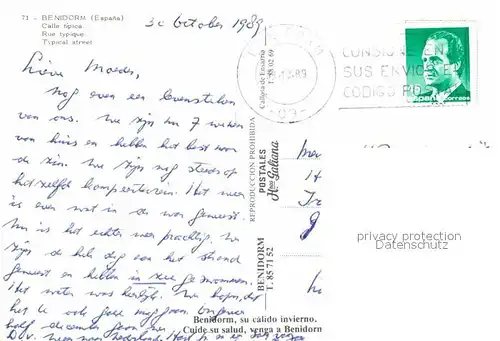 71 - BENIDORM (España)
Calle típica
Rue typique
Typical street
30 october 1989
Lieve Moeder,
Nog even een levensteken
van ons. We zijn nu 7 weken
van huis en hebben het best naar
de zin. We zijn nog steeds op
hetzelfde kampeerterrein. Het weer
is even wat in de war geweest
Nu is het echter weer prachtig. We
zijn de hele dag aan het strand
geweest en hebben in zee gezwommen.
Het water was heerlijk. We hopen, dat
het U ook goed mag gaan. Ongeveer
half december gaan we
D.V. weer naar Nederland.
Benidorm, su cálido invierno.
Cuide su salud, venga a Benidorm
REPRODUCCION PROHIBIDA
Caligrafía de Ensarria
T. 85 02 69
POSTALES
Hnos Galiana
BENIDORM
T. 85 71 52
CONSIGNE EN
SUS ENVIOS E
CODIGO PO
correos
privacy protection
Datenschutz